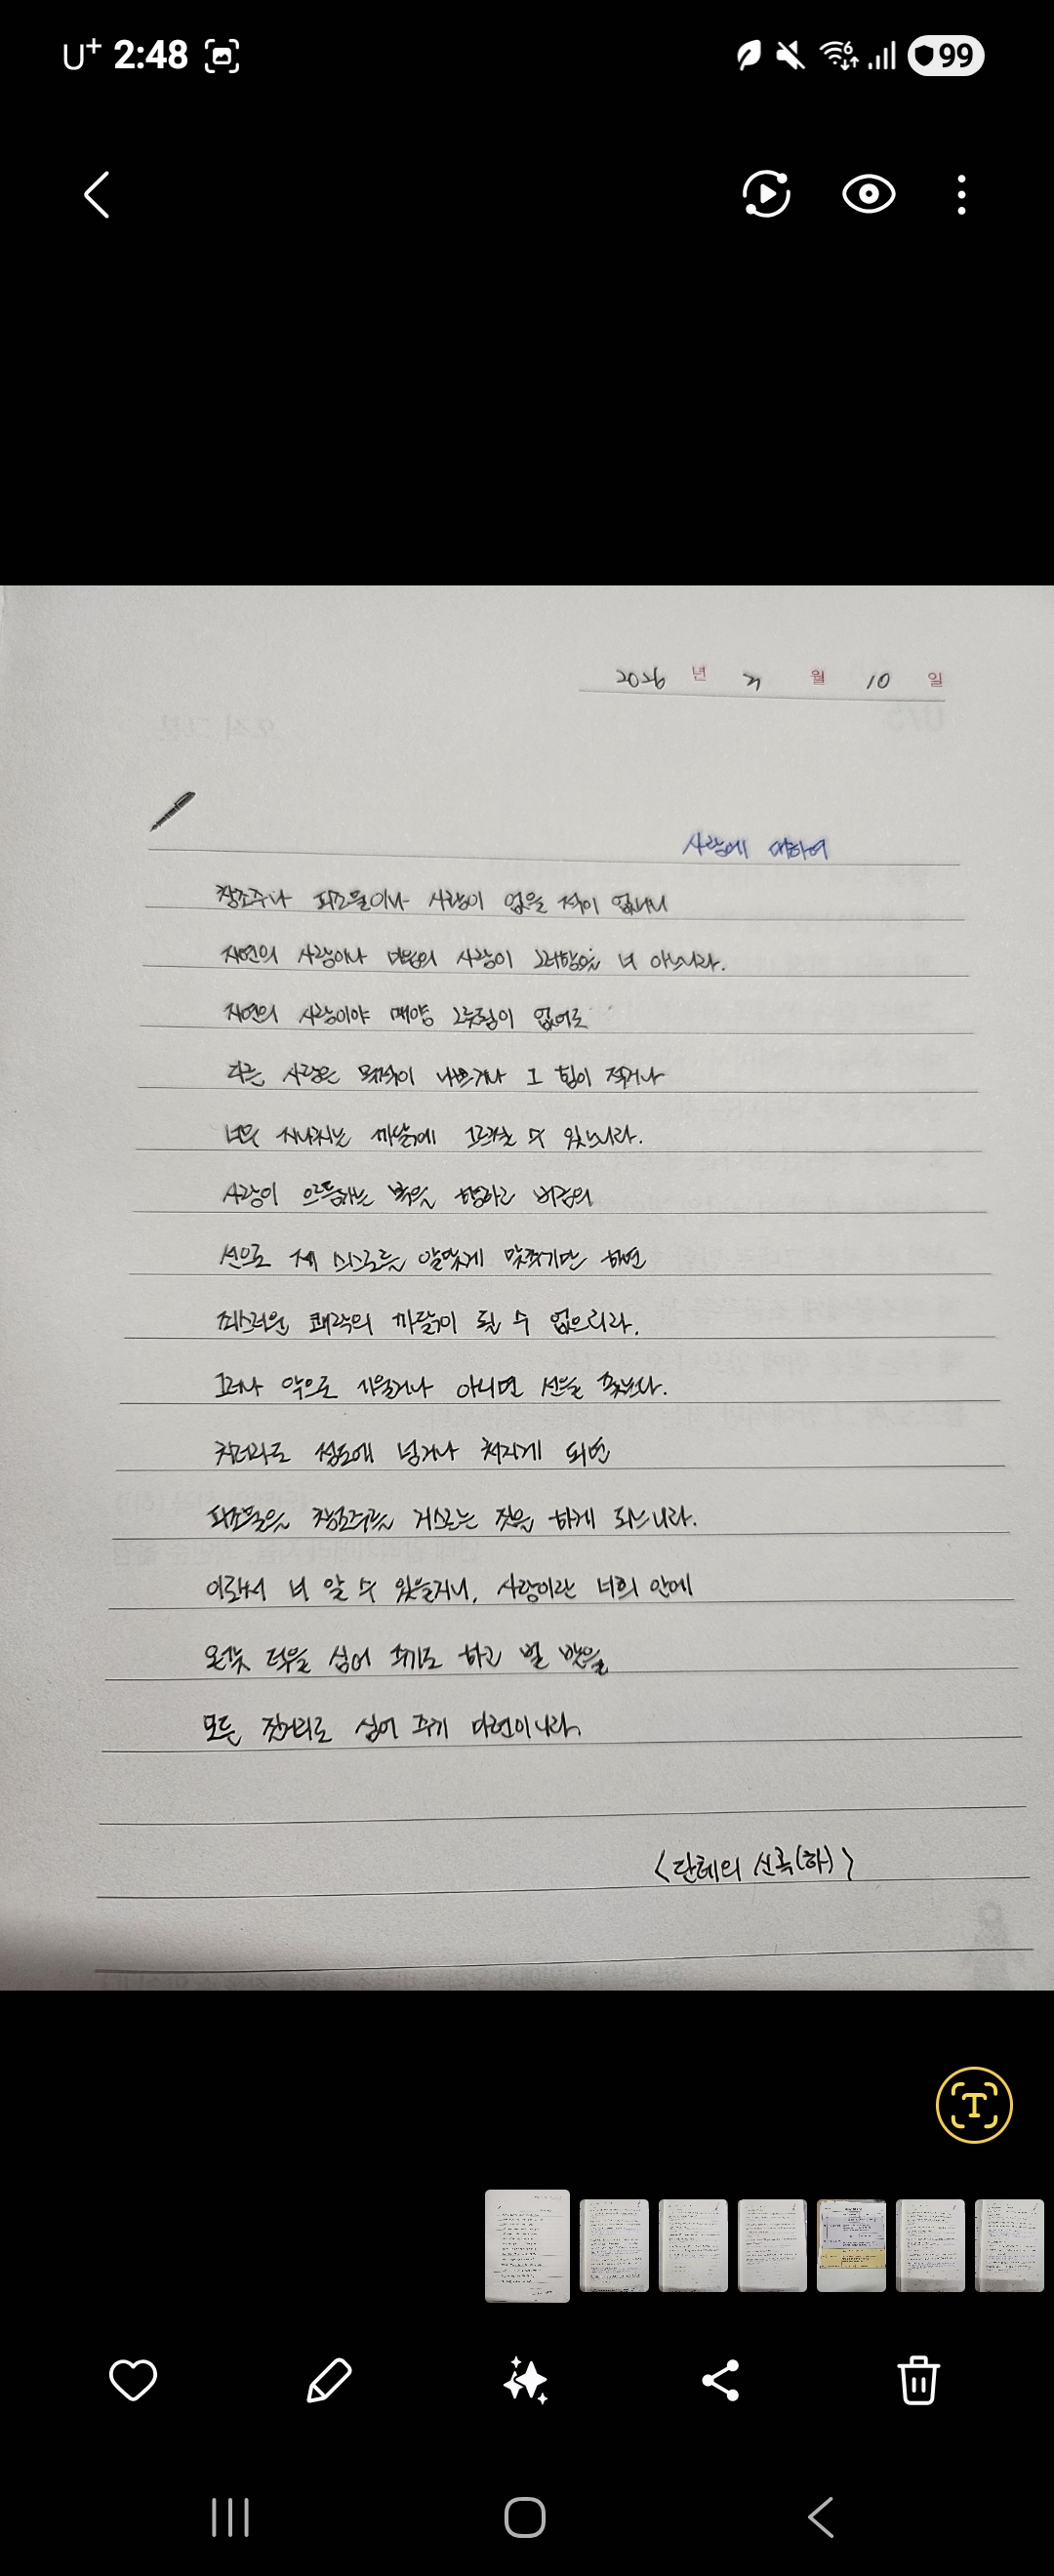 U+ 2:48 99
2026 년 월 10 일
사랑에 대하여
창조주나 피조물이나 사랑이 없을 적이 없나니
자연의 사랑이나 마음의 사랑이 그러함을 너 아느니라.
자연의 사랑이야 매양 그릇됨이 없어도
다른 사랑은 목적이 나쁘거나 그 힘이 적거나
너무 지나치는 까닭에 그르칠 수 있느니라.
사랑이 으뜸하는 복을 향하고 버금의
선으로 제 스스로를 알맞게 맞추기만 하면
죄스러운 쾌락의 까닭이 될 수 없으리라.
그러나 악으로 기울거나 아니면 선을 쫓는다.
치더라도 정도에 넘거나 처지게 되면
피조물은 창조주를 거스르는 짓을 하게 되느니라.
이로써 너 알 수 있을지니, 사랑이란 너희 안에
온갖 덕을 심어 주기도 하고 벌 받을
모든 짓거리로 심어 주기 마련이니라.
<단테의 신곡(하)>
T